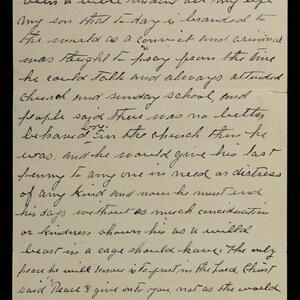 been a
all my life
my son that to-day is branded to
the world as a convict and criminal
was thought to pray from the time
he could talk and always attended
church and sunday school, and
people said there was no better
behaved boy in the church then he
was. and he would give his last
penny to any one in need or distress
of any kind and now he must end
his days without as much consideration
or kindness shown his as a willd
beast in a cage should have. The only
peace he will is to put in the Lord, Christ
said "Peace I give onto you, not as the world